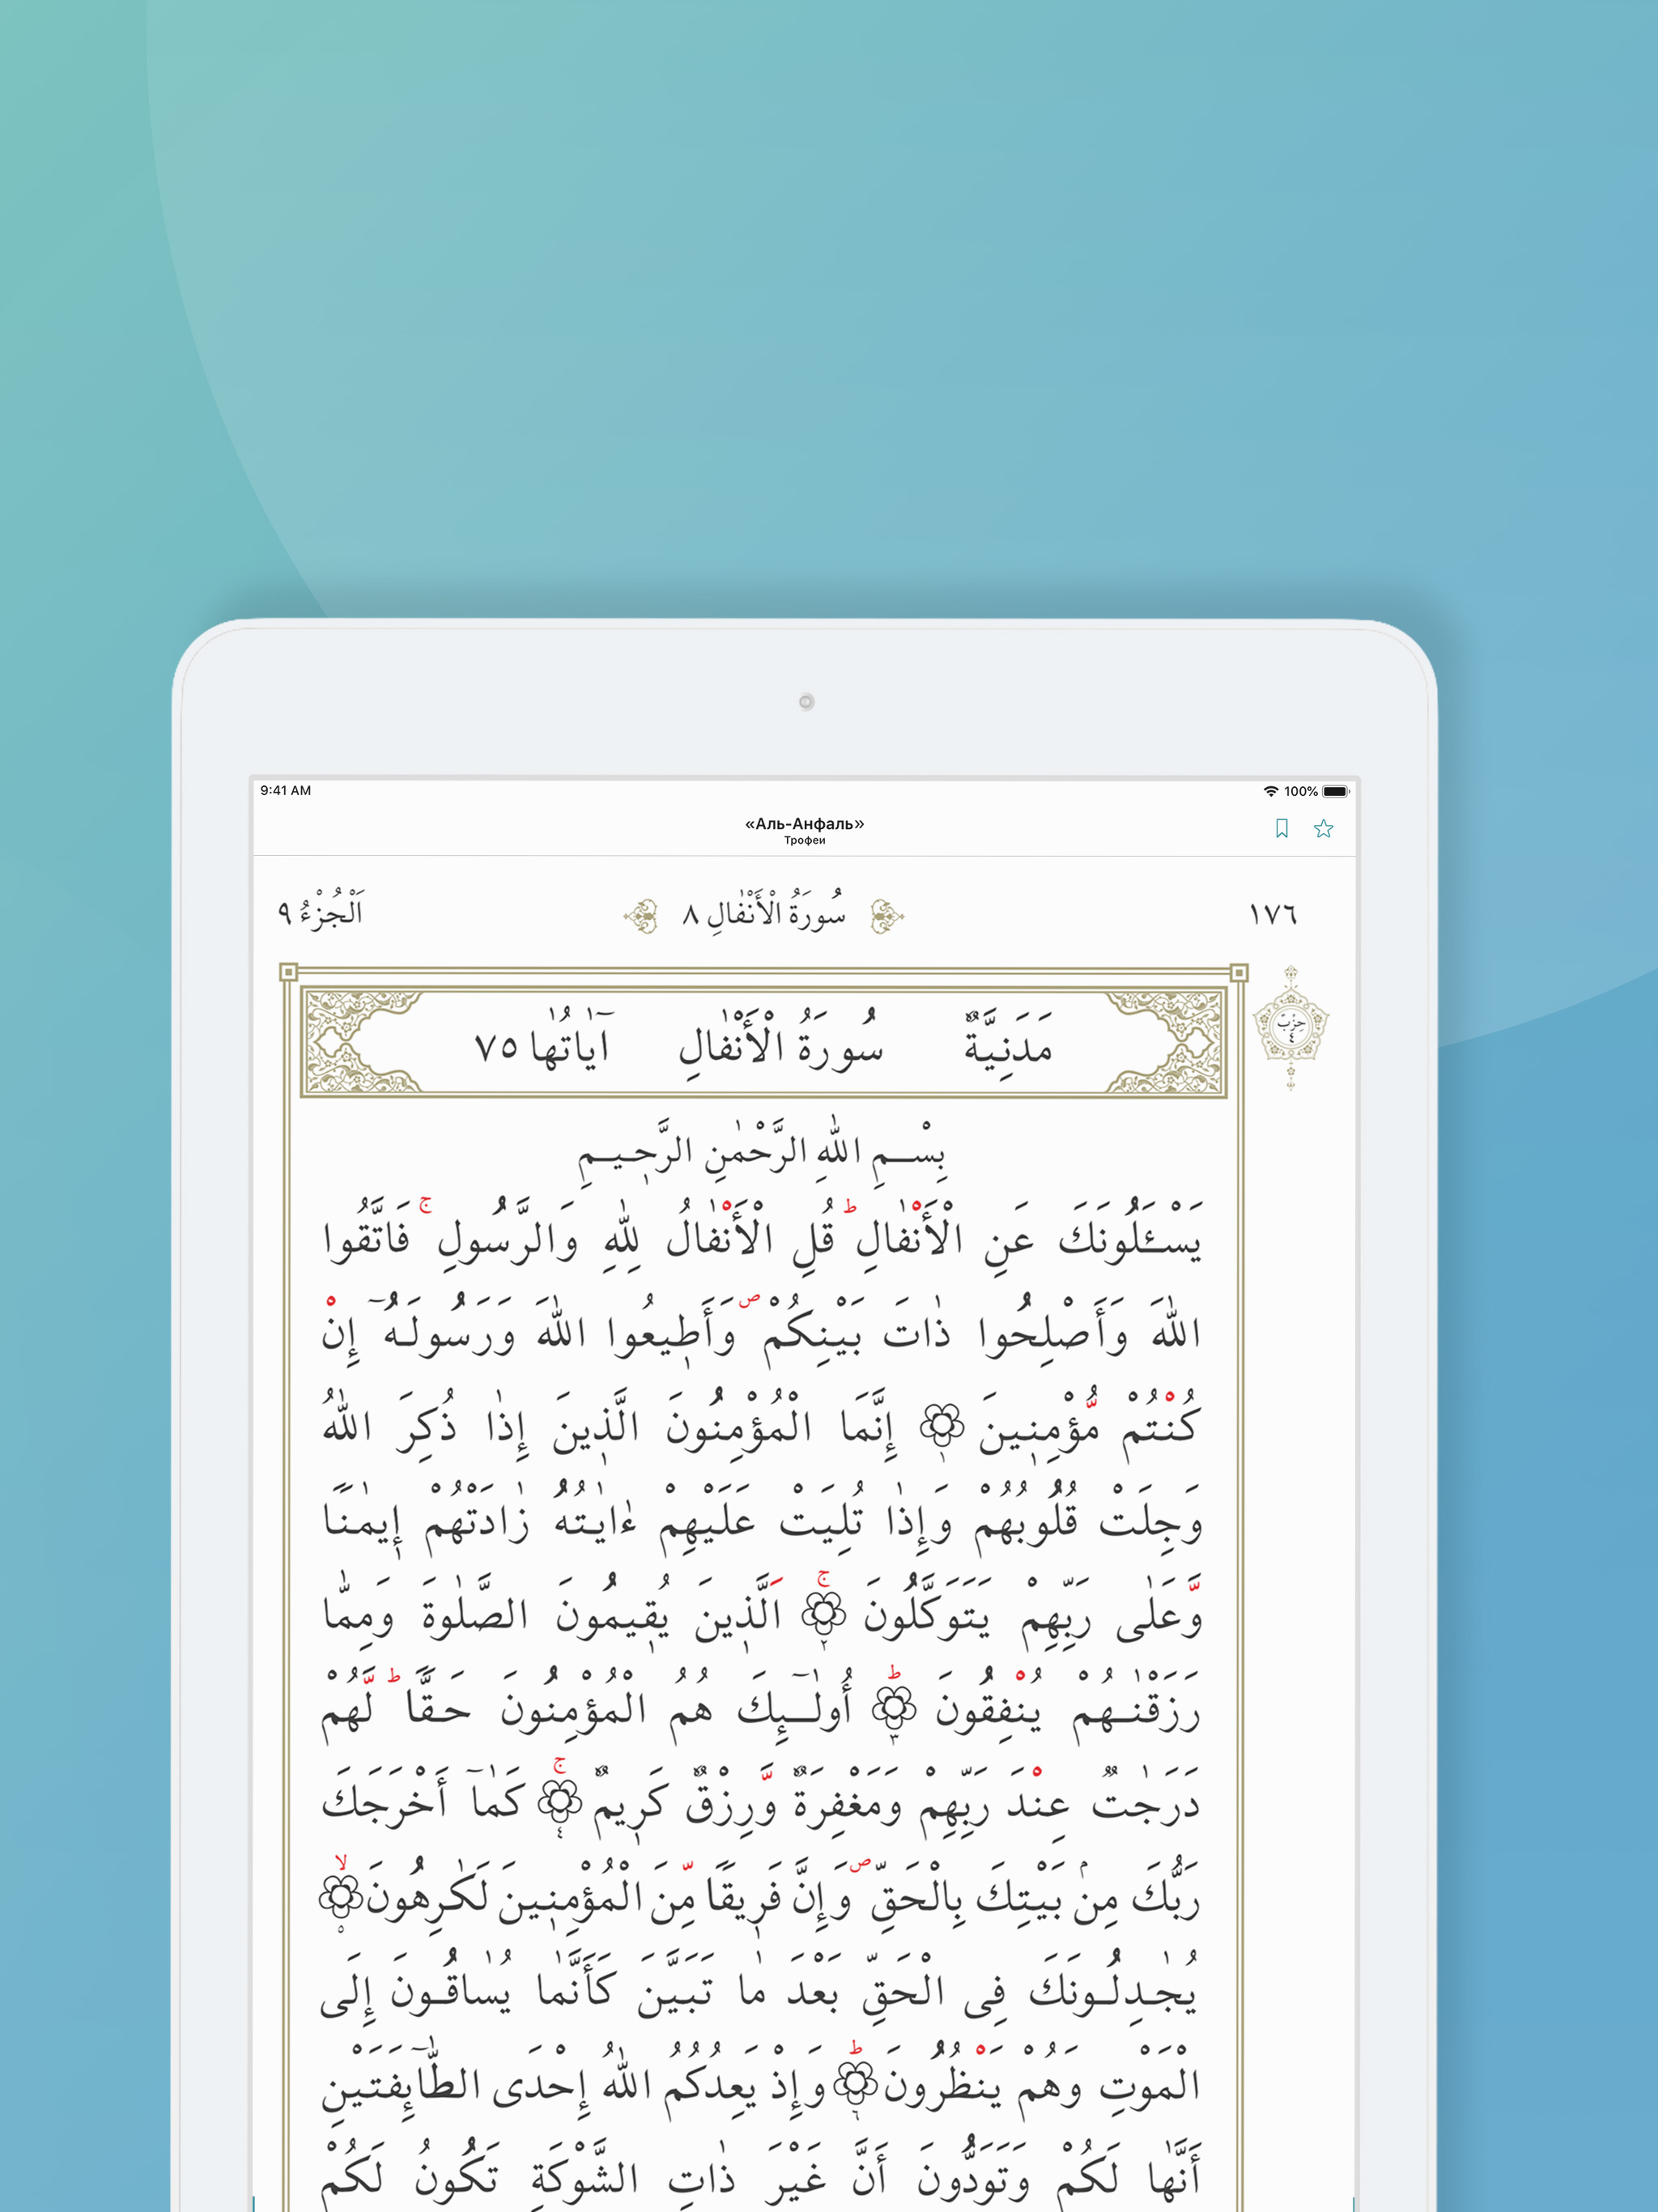 9:41 AM 100%
«Аль-Анфаль»
Трофеи
١٧٦ سُورَةُ الْأَنْفٰالِ ٨ اَلْجُزْءُ ٩
مَدَنِيَّةٌ سُورَةُ الْأَنْفٰالِ آيٰاتُهٰا ٧٥
حِزْبٌ
٤
بِسْــمِ اللّٰهِ الرَّحْمٰنِ الرَّحٖيــمِ
يَسْـَٔلُونَكَ عَنِ الْأَنْفٰالِ ؕ قُلِ الْأَنْفٰالُ لِلّٰهِ وَالرَّسُولِ ۚ فَاتَّقُوا
اللّٰهَ وَأَصْلِحُوا ذٰاتَ بَيْنِكُمْ ۖ وَأَطٖيعُوا اللّٰهَ وَرَسُولَـهُٓ إِنْ
كُنْتُمْ مُّؤْمِنٖينَ ١ إِنَّمَا الْمُؤْمِنُونَ الَّذٖينَ إِذٰا ذُكِرَ اللّٰهُ
وَجِلَتْ قُلُوبُهُمْ وَإِذٰا تُلِيَتْ عَلَيْهِمْ ءٰايٰـتُهُ زٰادَتْهُمْ إٖيمٰـنًـا
وَّعَلٰى رَبِّهِمْ يَتَوَكَّلُونَ ۚ ٢ اَلَّذٖينَ يُقٖيـمُونَ الصَّلٰوةَ وَمِمّٰا
رَزَقْنٰـهُمْ يُنْفِقُونَ ؕ ٣ أُولٰٓـئِكَ هُمُ الْمُؤْمِنُونَ حَـقًّا ؕ لَّهُمْ
دَرَجٰتٌ عِنْدَ رَبِّهِمْ وَمَغْفِرَةٌ وَّرِزْقٌ كَرٖيمٌ ۚ ٤ كَمٰٓا أَخْرَجَكَ
رَبُّكَ مِنْۢ بَيْتِكَ بِالْحَقِّ ۖ وَإِنَّ فَرٖيقًا مِّنَ الْمُؤْمِنٖينَ لَكٰرِهُونَ ۙ ٥
يُجٰـدِلُـونَكَ فِى الْحَقِّ بَعْدَ مٰا تَبَيَّنَ كَأَنَّمٰا يُسٰاقُـونَ إِلَى
الْمَوْتِ وَهُمْ يَنْظُرُونَ ؕ ٦ وَإِذْ يَعِدُكُمُ اللّٰهُ إِحْدَى الطّٰٓائِفَتَيْنِ
أَنَّهٰا لَكُمْ وَتَوَدُّونَ أَنَّ غَيْرَ ذٰاتِ الشَّوْكَةِ تَكُونُ لَكُمْ